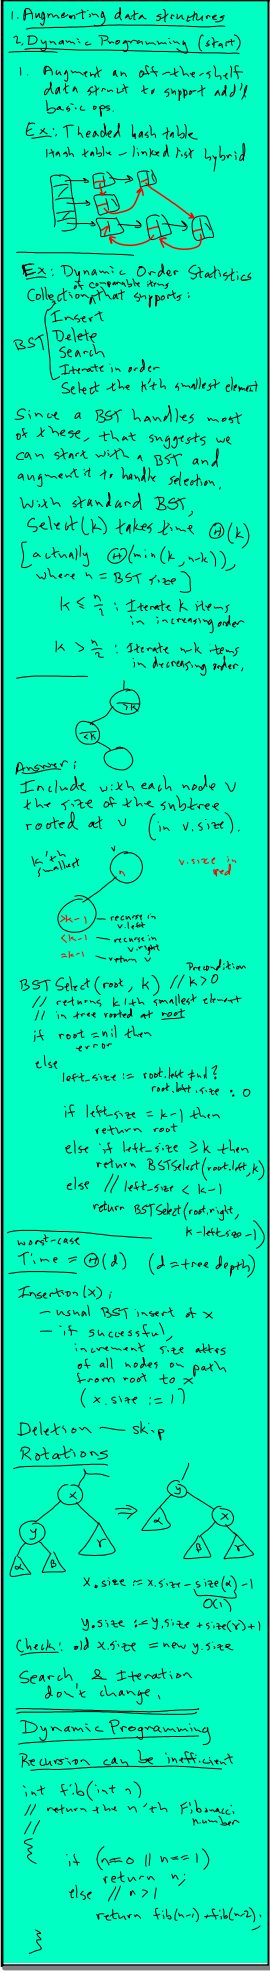 1. Augmenting data structures
2. Dynamic Programming (start)
1. Augment an off-the-shelf
data struct to support add'l
basic ops.
Ex: Theaded hash table
Hash table - linked list hybrid
Ex: Dynamic Order Statistics
of comparable items
Collection that supports:
Insert
Delete
BST
Search
Iterate in order
Select the k'th smallest element
Since a BST handles most
of these, that suggests we
can start with a BST and
augment it to handle selection.
With standard BST,
Select(k) takes time Θ(k)
[actually Θ(min(k, n-k)),
where n = BST size]
k ≤ n/2 : Iterate k items
in increasing order
k > n/2 : Iterate n-k items
in decreasing order.
>k
<k
Answer:
Include with each node v
the size of the subtree
rooted at v (in v.size).
k'th
smallest
v
n
v.size in
red
>k-1 - recurse in
v.left
<k-1 - recurse in
v.right
=k-1 - return v
Precondition
BSTSelect(root, k) // k>0
// returns k'th smallest element
// in tree rooted at root
if root = nil then
error
else
left_size := root.left ≠ nil ?
root.left.size : 0
if left_size = k-1 then
return root
else if left_size ≥ k then
return BSTSelect(root.left, k)
else // left_size < k-1
return BSTSelect(root.right,
k - left_size - 1)
worst-case
Time = Θ(d) (d = tree depth)
Insertion(x):
- usual BST insert of x
- if successful,
increment size attrs
of all nodes on path
from root to x
(x.size := 1)
Deletion - skip
Rotations
x
y
α
β
γ
⇒
y
α
x
β
γ
x.size := x.size - size(α) - 1
O(1)
y.size := y.size + size(γ) + 1
Check: old x.size = new y.size
Search & Iteration
don't change.
Dynamic Programming
Recursion can be inefficient
int fib(int n)
// return the n'th Fibonacci
number
//
{
if (n==0 || n==1)
return n;
else // n>1
return fib(n-1)+fib(n-2);
}